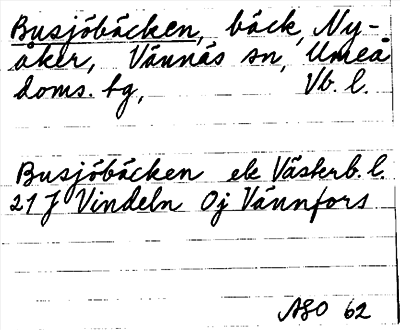 Busjöbäcken, bäck, Ny-
åker, Vännäs sn, Umeå
doms. hg, Vb. l.
Busjöbäcken ek Västerb. l.
21 J Vindeln Oj Vännfors
ASO 62